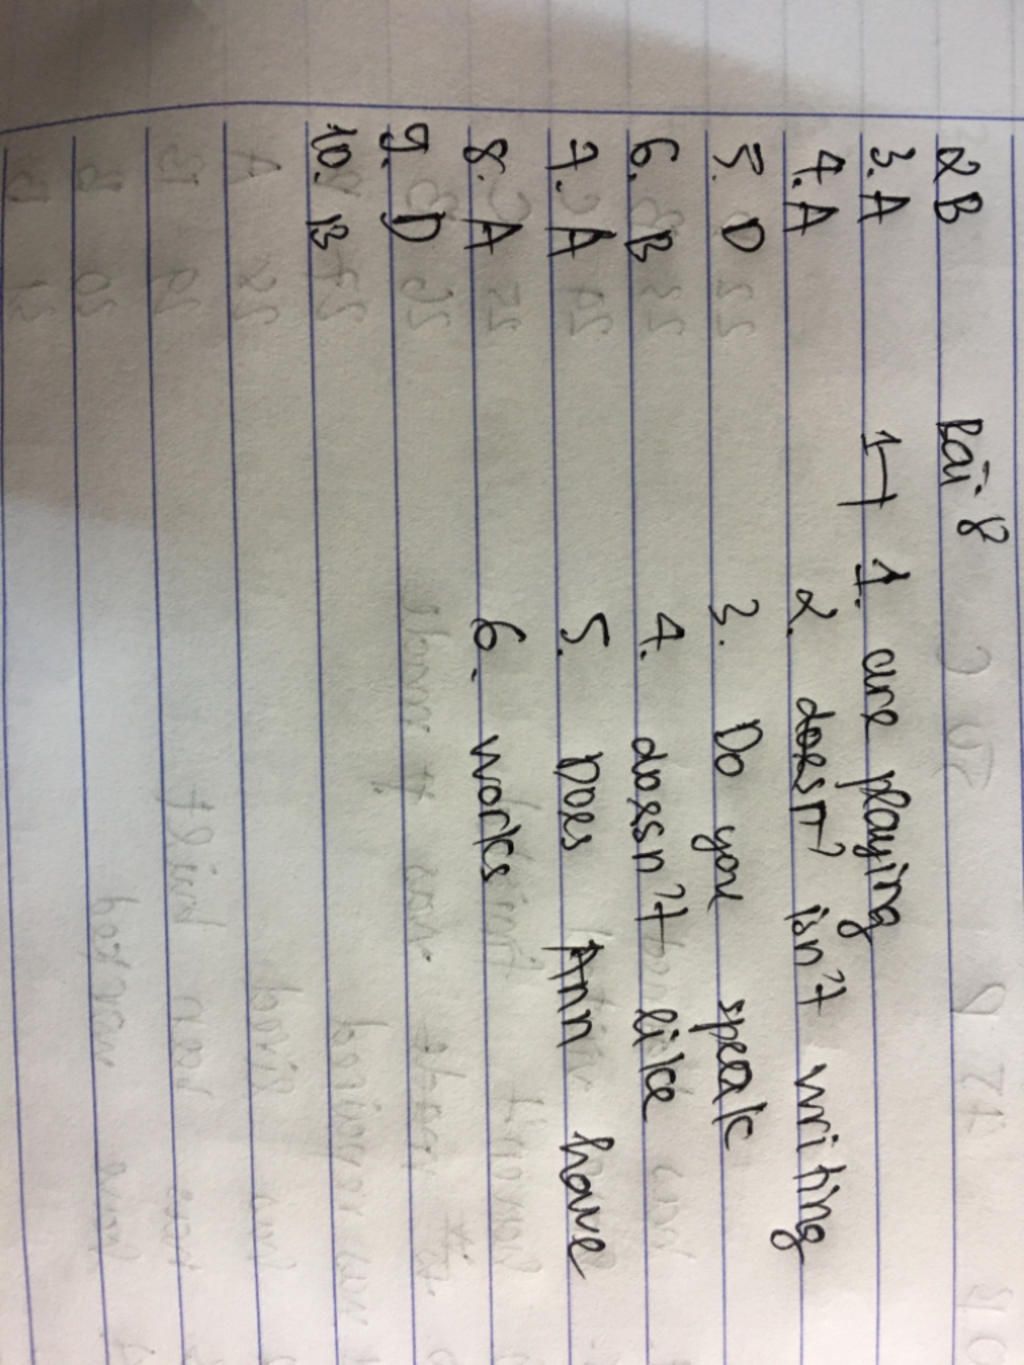 2B
3. A
4. A
5. D
6. B
7. A
8. A
9. D
10. B
Bài 8
1. are playing
2. doesn't isn't writing
3. Do you speak
4. doesn't like
5. Does Ann have
6. works